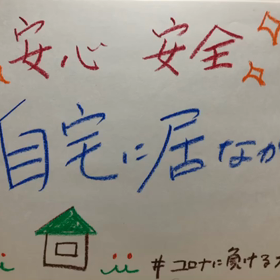 安心 安全
自宅に居なが
#コロナに負ける